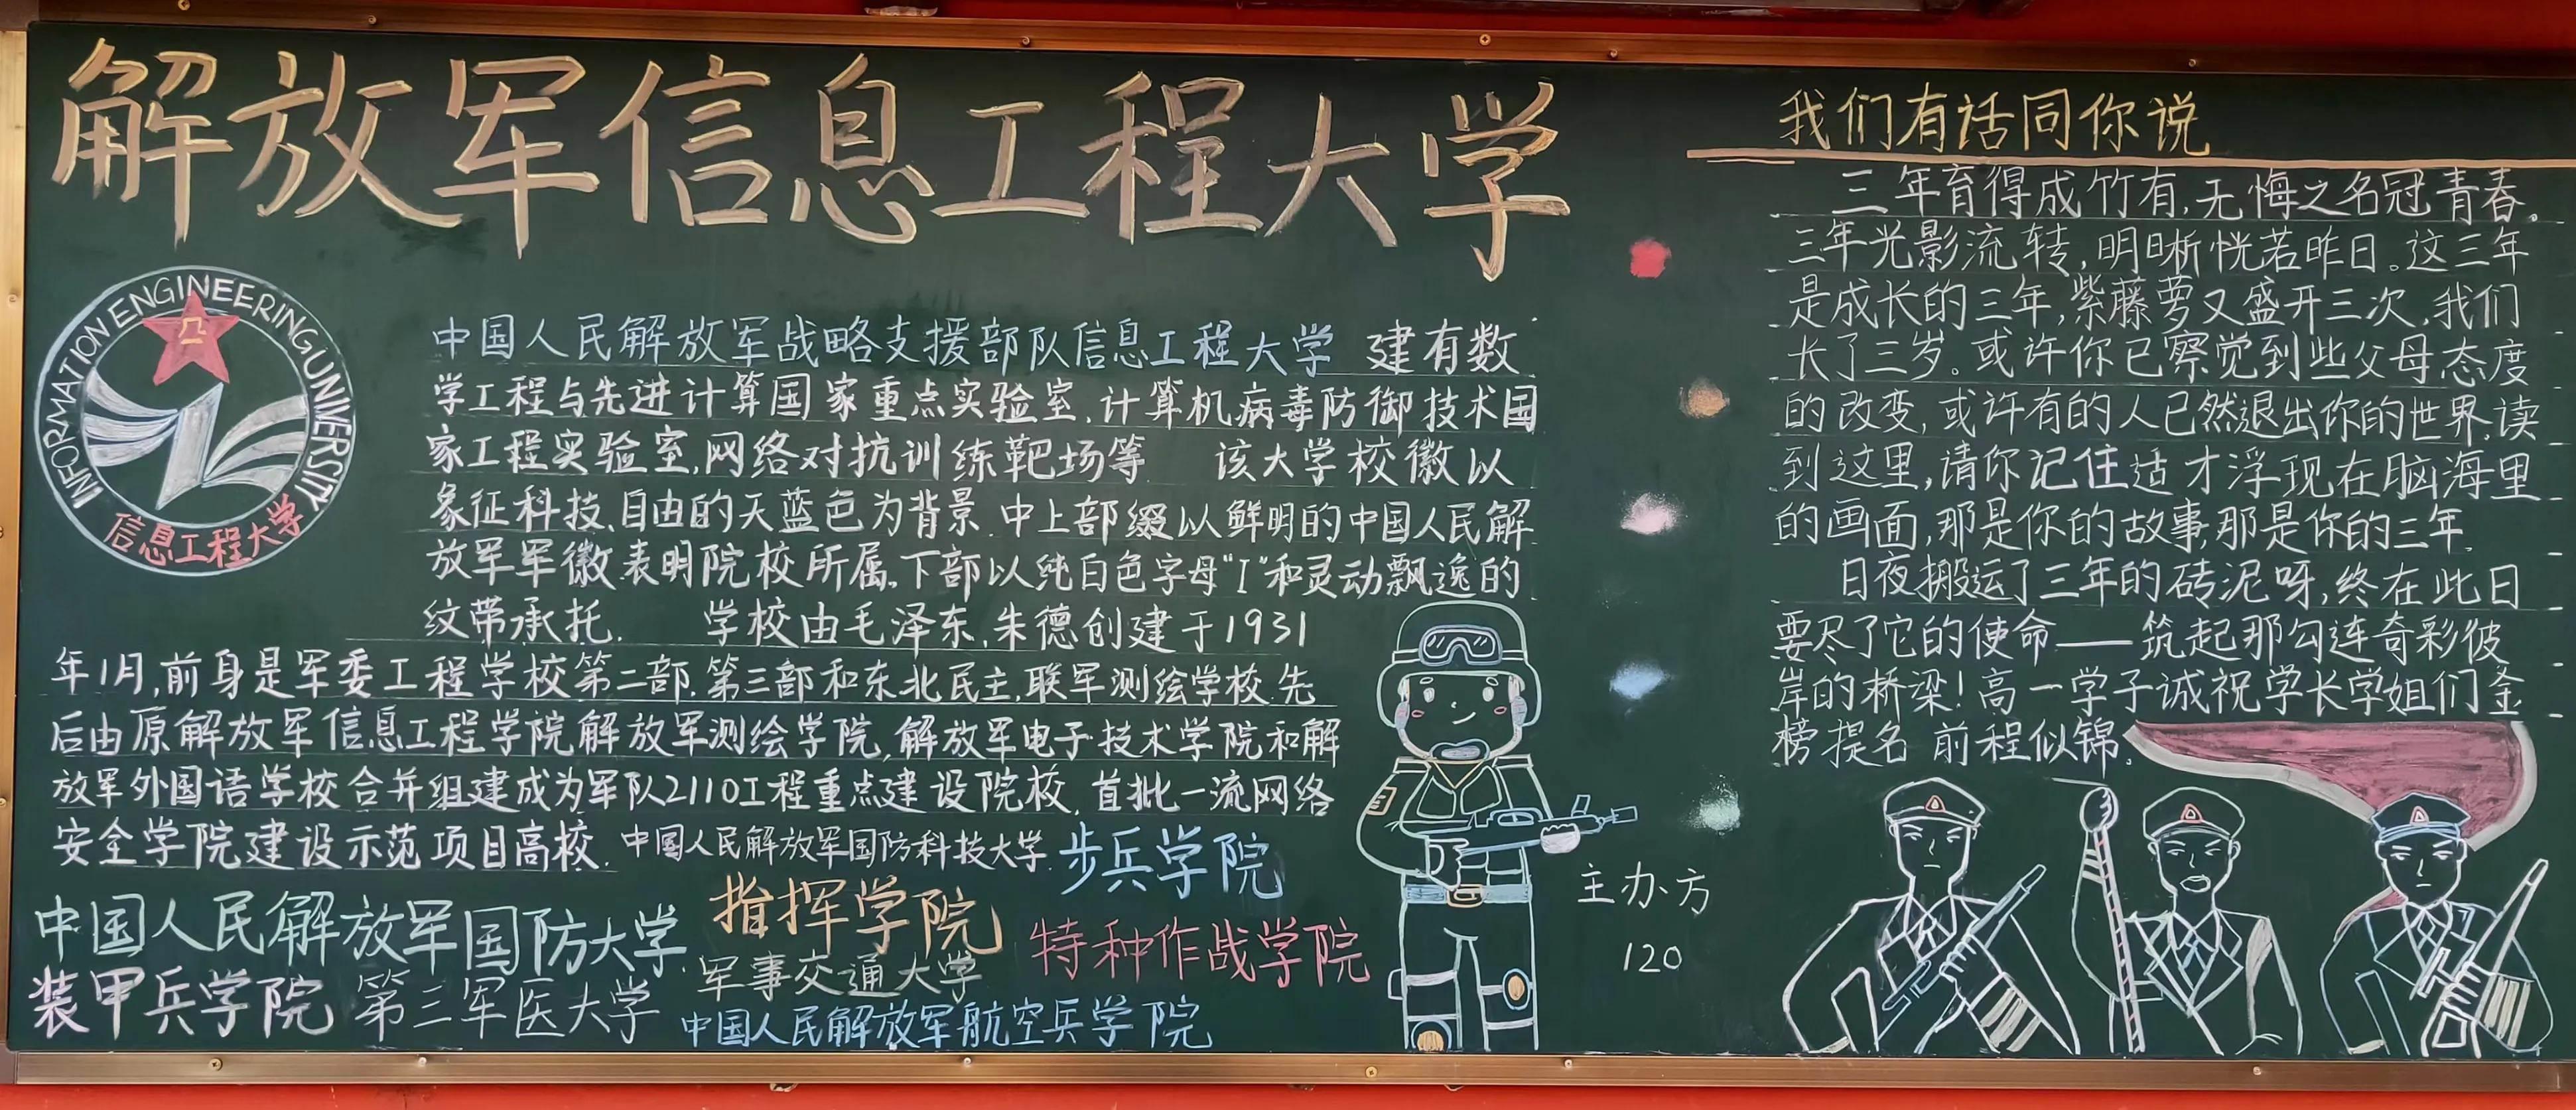 解放军信息工程大学
INFORMATION ENGINEERING UNIVERSITY
信息工程大学
中国人民解放军战略支援部队信息工程大学 建有数
学工程与先进计算国家重点实验室,计算机病毒防御技术国
家工程实验室,网络对抗训练靶场等 该大学校徽以
象征科技、自由的天蓝色为背景.中上部缀以鲜明的中国人民解
放军军徽表明院校所属,下部以纯白色字母"I"和灵动飘逸的
纹带承托. 学校由毛泽东,朱德创建于1931
年1月,前身是军委工程学校第二部.第三部和东北民主,联军测绘学校.先
后由原解放军信息工程学院解放军测绘学院,解放军电子技术学院和解
放军外国语学校合并组建成为军队2110工程重点建设院校,首批一流网络
安全学院建设示范项目高校.
中国人民解放军国防科技大学
步兵学院
中国人民解放军国防大学
指挥学院
特种作战学院
军事交通大学
装甲兵学院
第三军医大学
中国人民解放军航空兵学院
主办方
120
我们有话同你说
三年育得成竹有,无悔之名冠青春。
三年光影流转,明晰恍若昨日。这三年
是成长的三年,紫藤萝又盛开三次,我们
长了三岁。或许你已察觉到些父母态度
的改变,或许有的人已然退出你的世界.读
到这里,请你记住适才浮现在脑海里
的画面,那是你的故事,那是你的三年.
日夜搬运了三年的砖泥呀,终在此日
要尽了它的使命——筑起那勾连奇彩彼
岸的桥梁!高一学子诚祝学长学姐们金
榜提名 前程似锦.